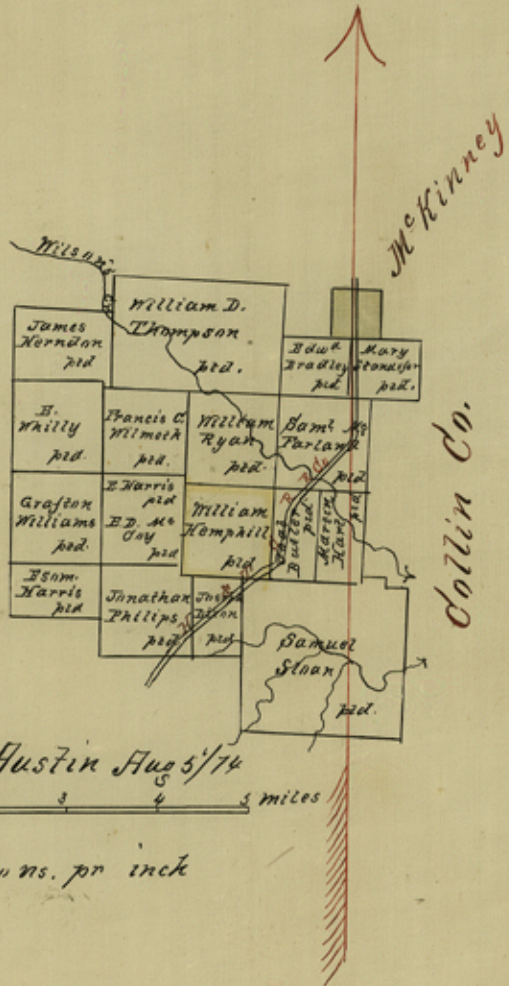 McKinney
Collin Co.
Wilson's
William D.
Thompson
ptd.
James
Herndon
ptd
Edwd
Bradley
ptd
Mary
Standifer
ptd.
B.
Whilly
ptd.
Francis C.
Wilmeth
ptd.
William
Ryan
ptd.
Saml Mc
Farland
ptd
Grafton
Williams
ptd.
E Harris
ptd
E.D. Mc
Coy
ptd
William
Hemphill
ptd
Butler
ptd
Martin
Hart
ptd
Esom.
Harris
ptd
Jonathan
Philips
ptd
ptd
Samuel
Sloan
ptd.
R R Co
Austin Aug 5'/74
3 4 5 miles
ns. pr inch